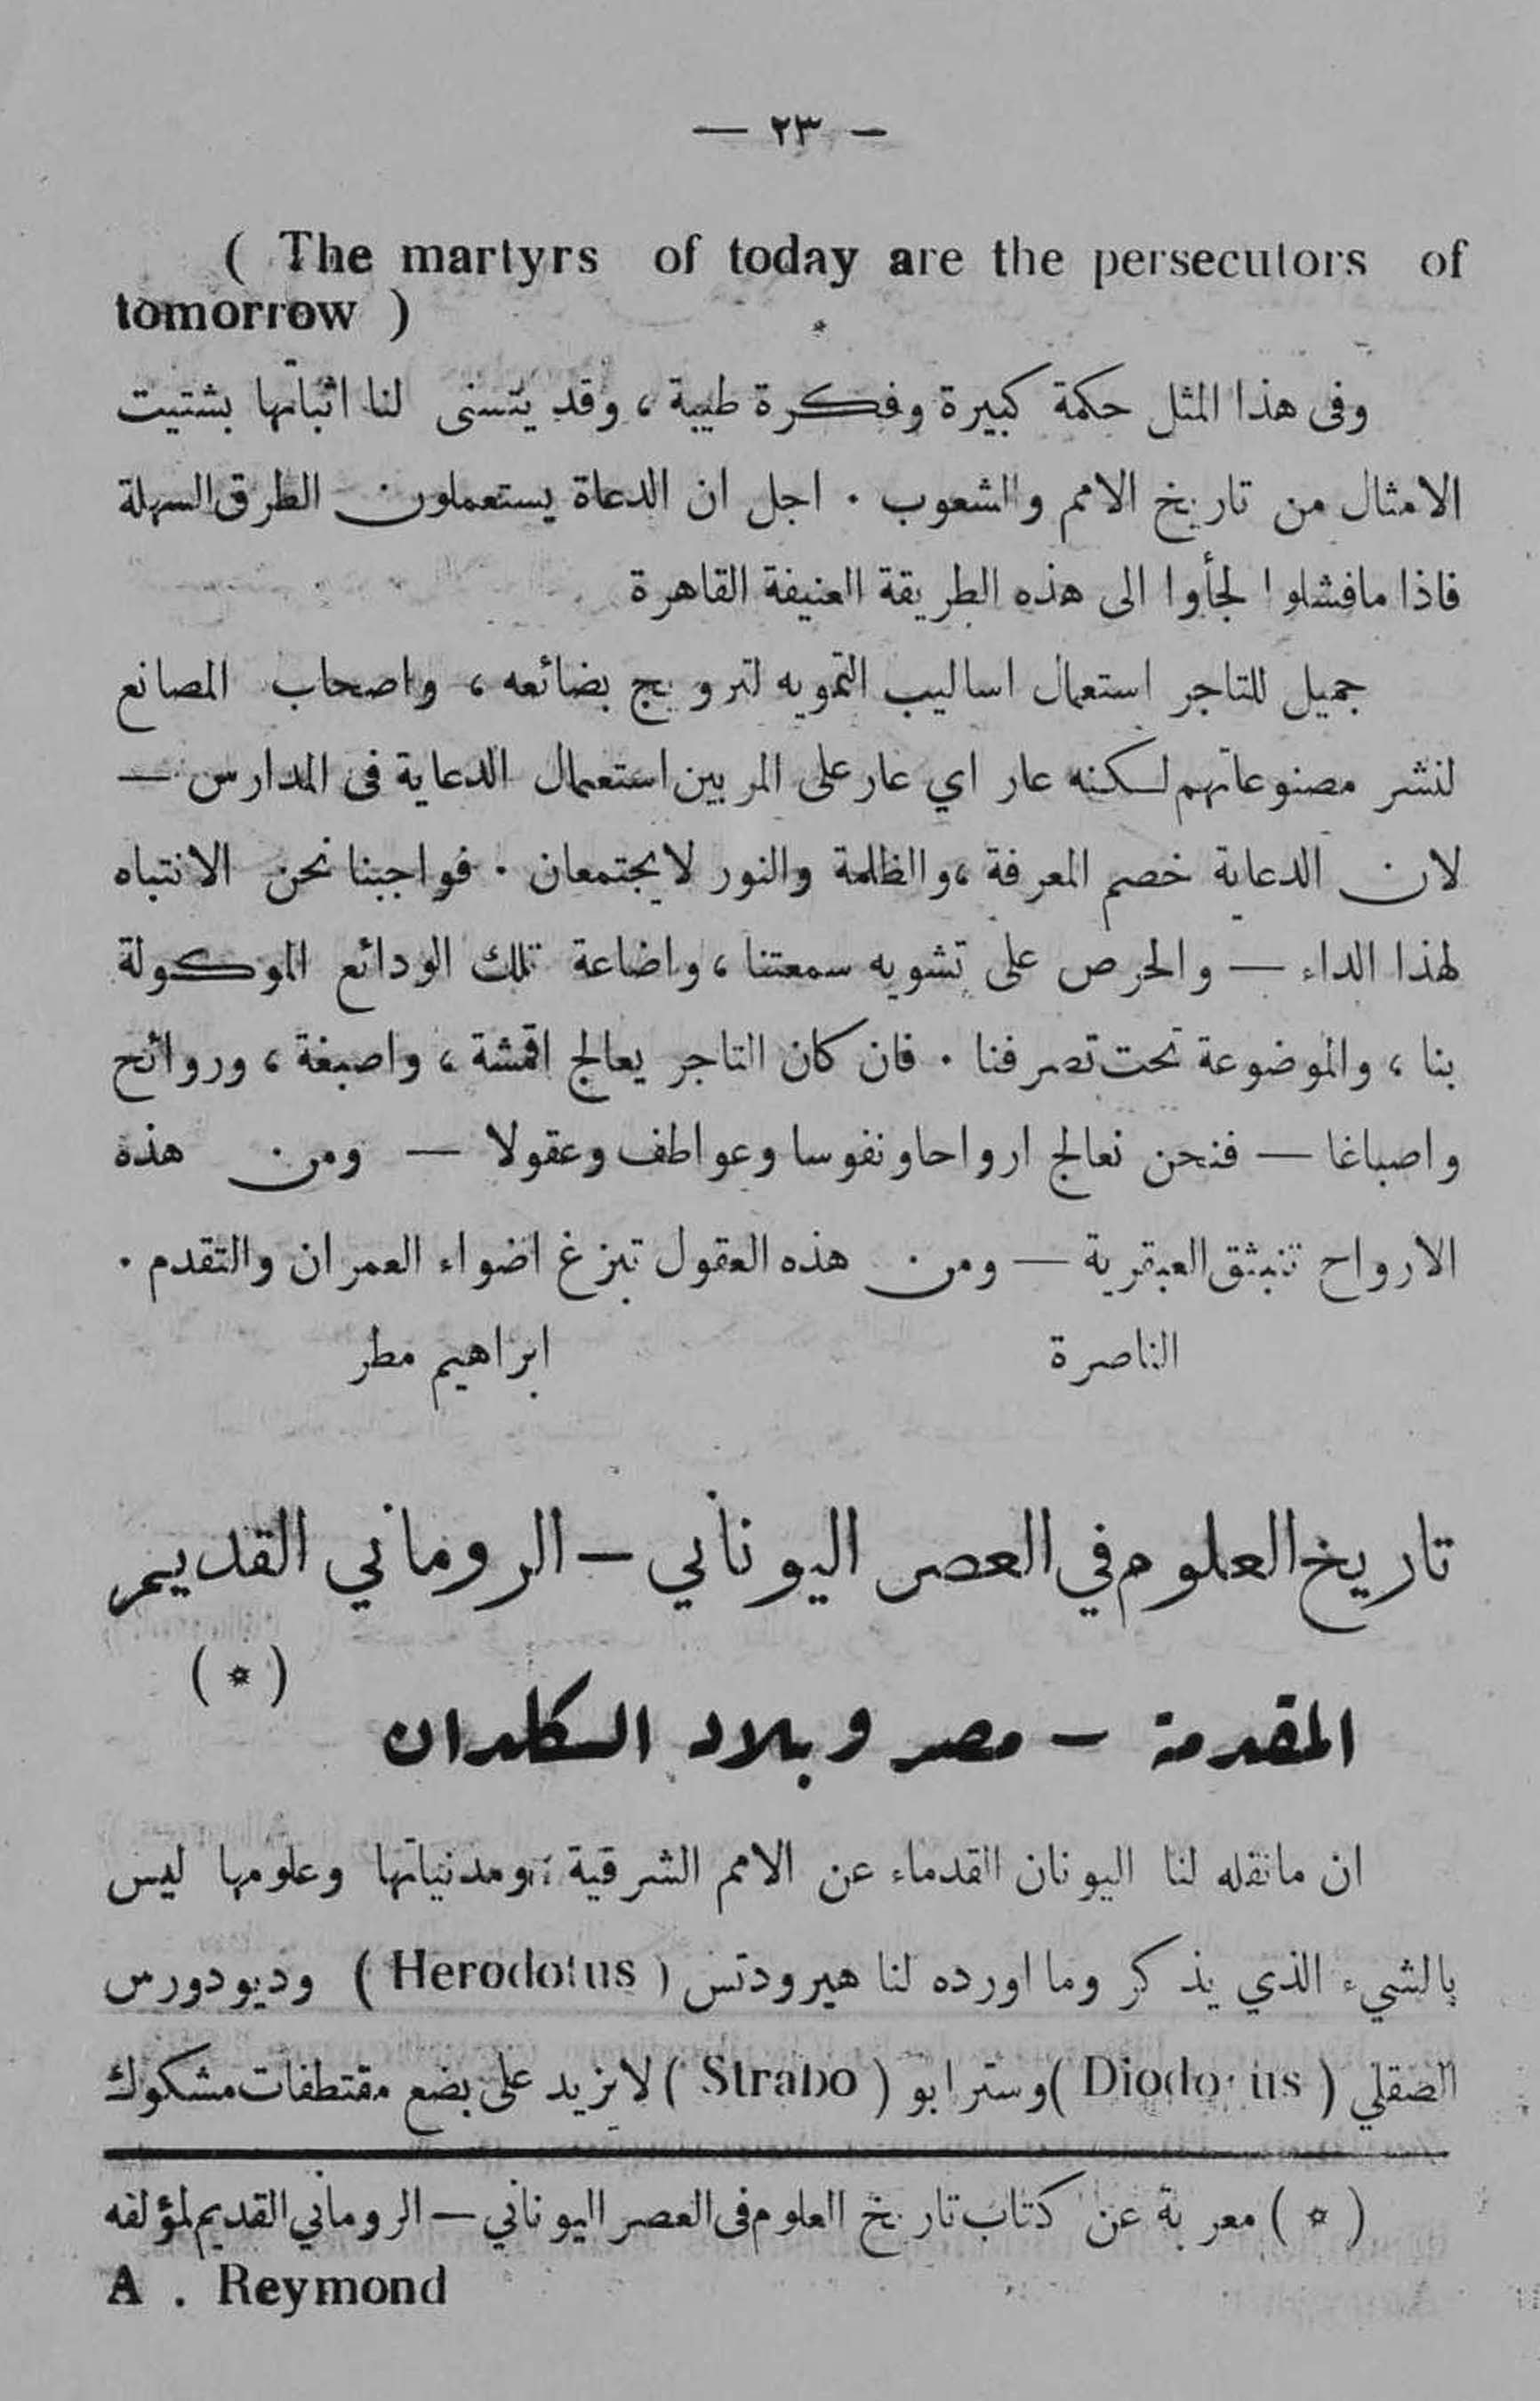 — ٢٣ —
( The martyrs of today are the persecutors of
tomorrow )
*
وفى هذا المثل حكمة كبيرة وفكرة طيبة ، وقد يتسنى لنا اثباتها بشتيت
الامثال من تاريخ الامم والشعوب . اجل ان الدعاة يستعملون الطرق السهلة
فاذا مافشلوا لجأوا الى هذه الطريقة العنيفة القاهرة
جميل للتاجر استعمال اساليب التمويه لترويج بضائعه ، واصحاب المصانع
لنشر مصنوعاتهم لكنه عار اي عار على المربين استعمال الدعاية فى المدارس —
لان الدعاية خصم المعرفة ، والظلمة والنور لايجتمعان . فواجبنا نحن الانتباه
لهذا الداء — والحرص على تشويه سمعتنا ، واضاعة تلك الودائع الموكولة
بنا ، والموضوعة تحت تصرفنا . فان كان التاجر يعالج اقمشة ، واصبغة ، وروائح
واصباغا — فنحن نعالج ارواحا ونفوسا وعواطف وعقولا — ومن هذه
الارواح تنبثق العبقرية — ومن هذه العقول تبزغ اضواء العمران والتقدم .
الناصرة ابراهيم مطر
تاريخ العلوم في العصر اليوناني – الروماني القديم
( * )
المقدمة – مصر وبلاد الكلدان
ان مانقله لنا اليونان القدماء عن الامم الشرقية ، ومدنياتها وعلومها ليس
بالشيء الذي يذكر وما اورده لنا هيرودتس ( Herodotus ) وديودورس
الصقلي ( Diodorus ) وسترابو ( Strabo ) لايزيد على بضع مقتطفات مشكوك
( * ) معربة عن كتاب تاريخ العلوم فى العصر اليوناني – الروماني القديم لمؤلفه
A . Reymond